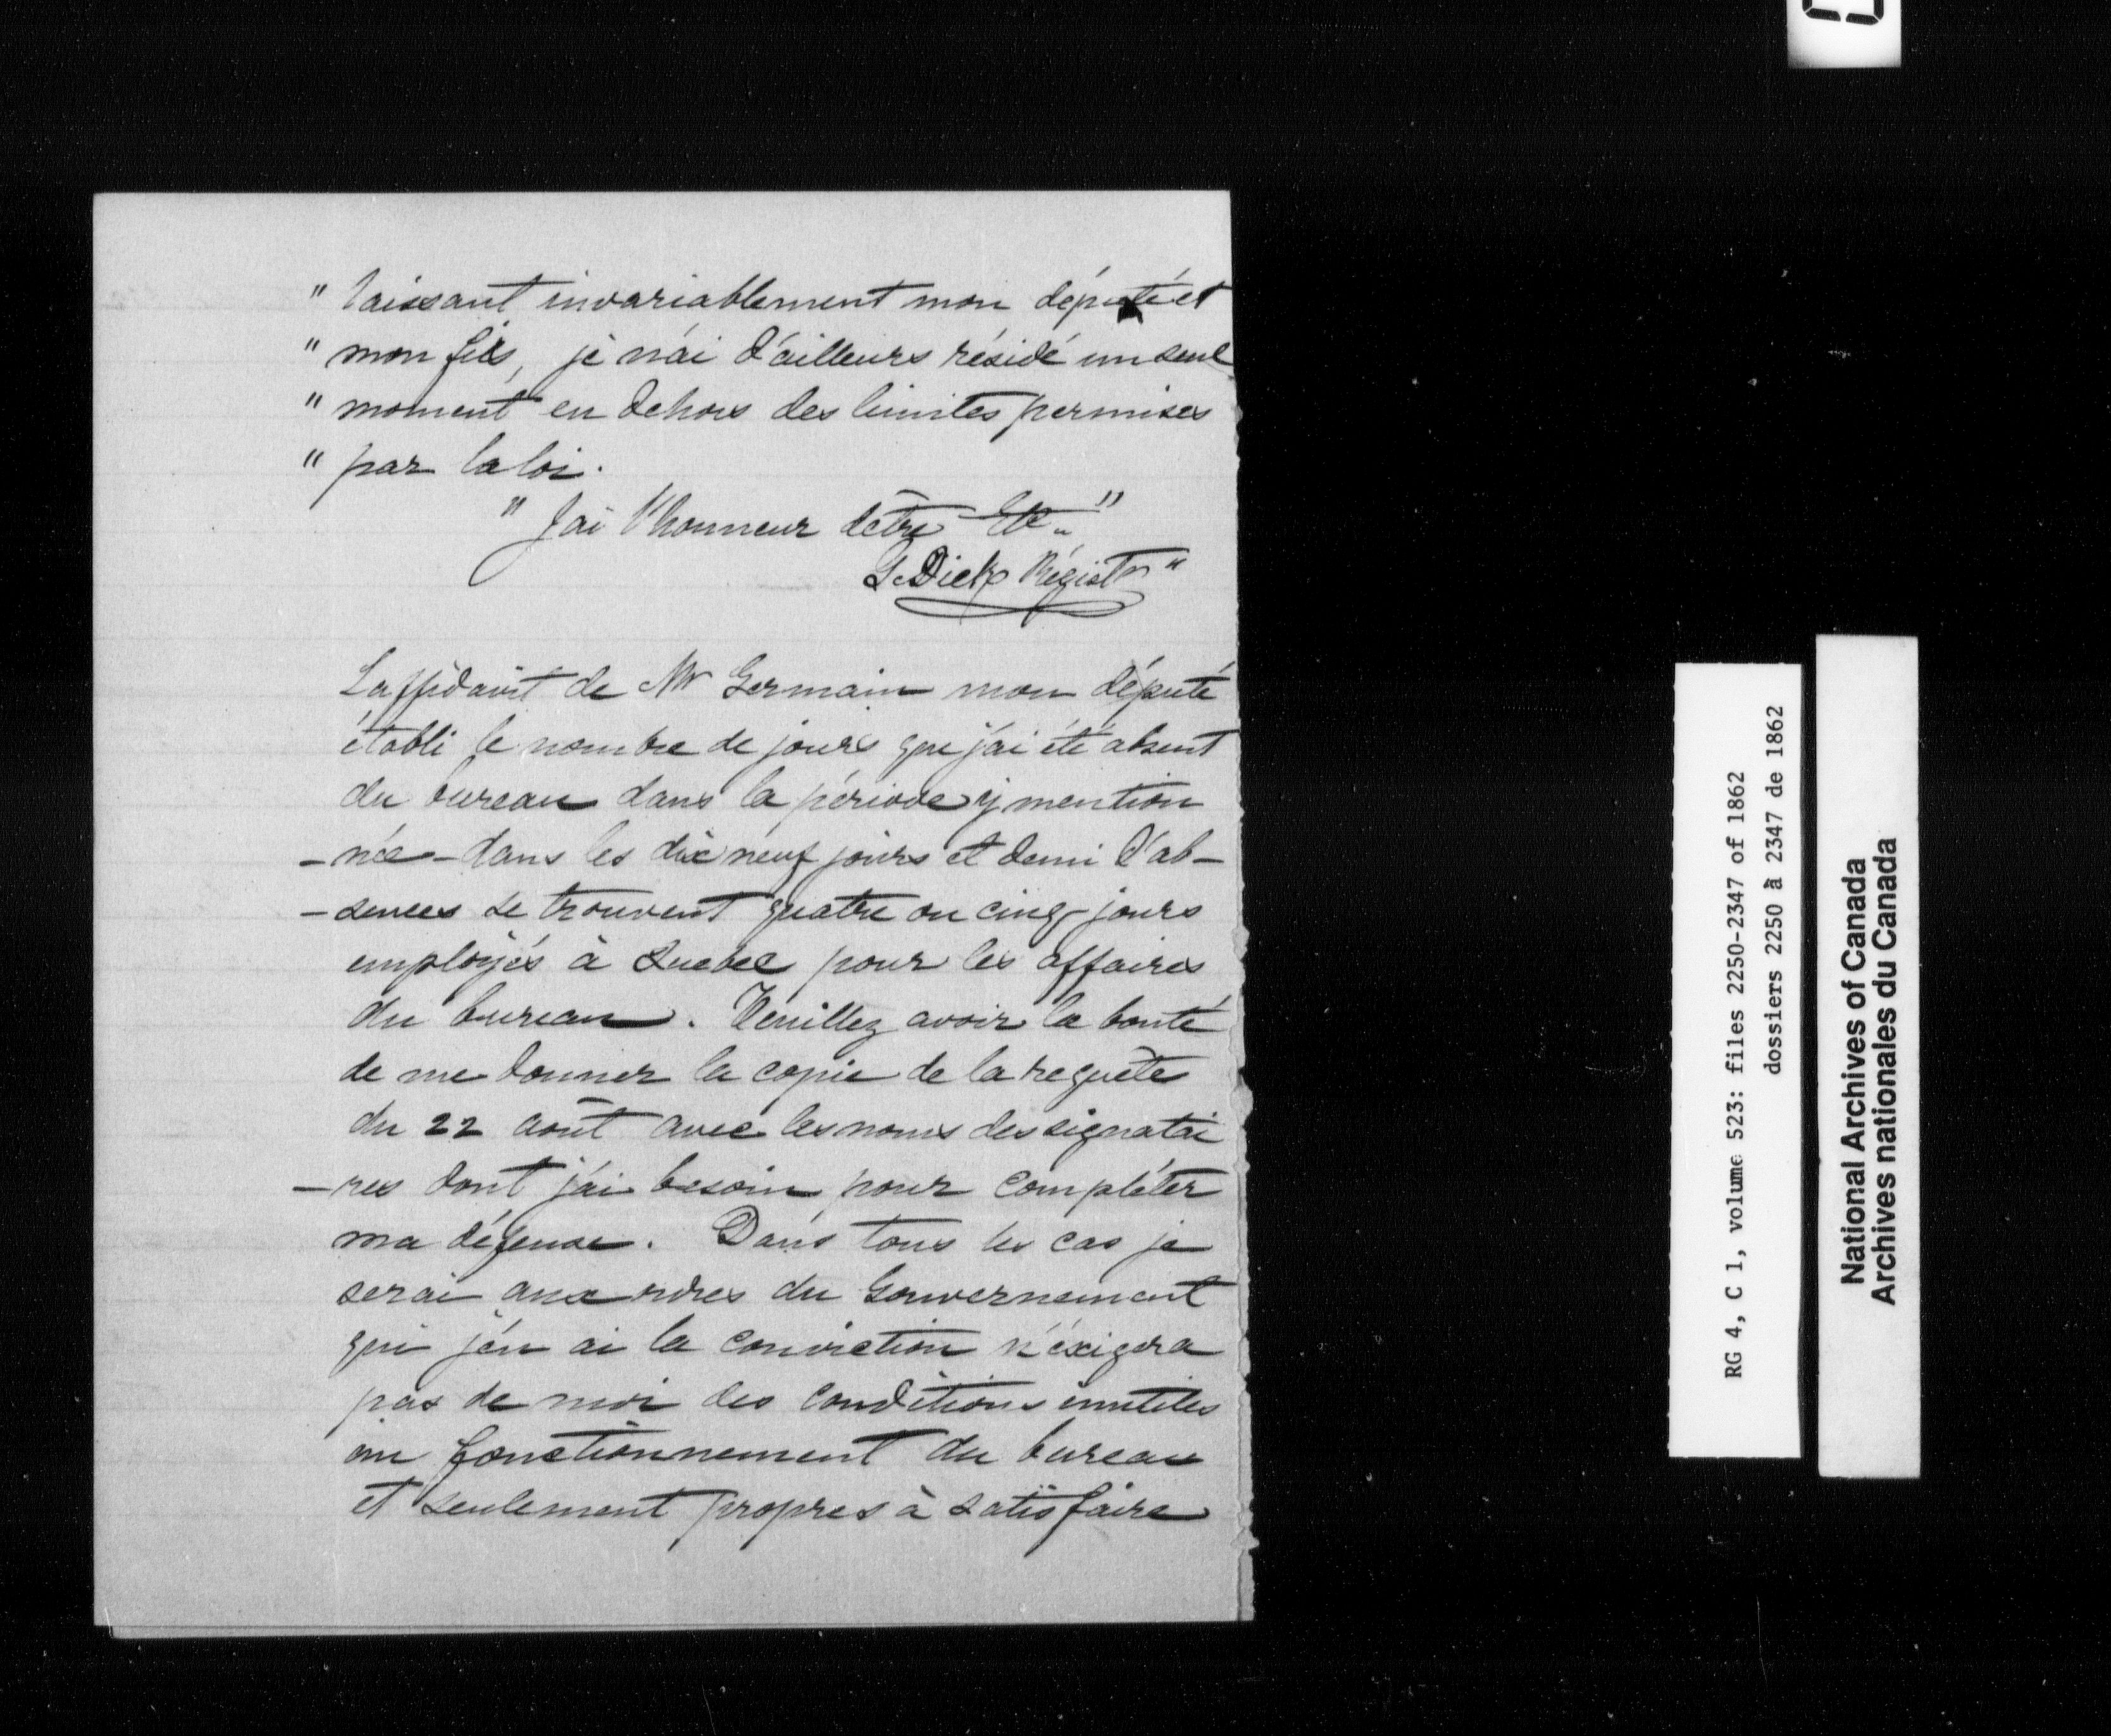 " laissant invariablement mon député et
" mon fils, je n'ai d'ailleurs résidé un seul
" moment en dehors des limites permises
" par la loi.
" J'ai l'honneur d'être Etc "
Dick Régistr "
L'affidavit de Mr Germain mon député
établi le nombre de jours que j'ai été absent
du bureau dans la période y mention
- née - dans les dix neuf jours et demi d'ab-
- sences se trouvent quatre ou cinq jours
employés à Quebec pour les affaires
du bureau. Veuillez avoir la bonté
de me donner la copie de la requête
du 22 août avec les noms des signatai
- res dont j'ai besoin pour compléter
ma défense. Dans tous les cas je
serai aux ordres du Gouvernement
qui j'en ai la conviction n'éxigera
pas de moi des conditions inutiles
au fonctionnement du bureau
et seulement propres à satisfaire
RG 4, C 1, volume 523: files 2250-2347 of 1862
dossiers 2250 à 2347 de 1862
National Archives of Canada
Archives nationales du Canada